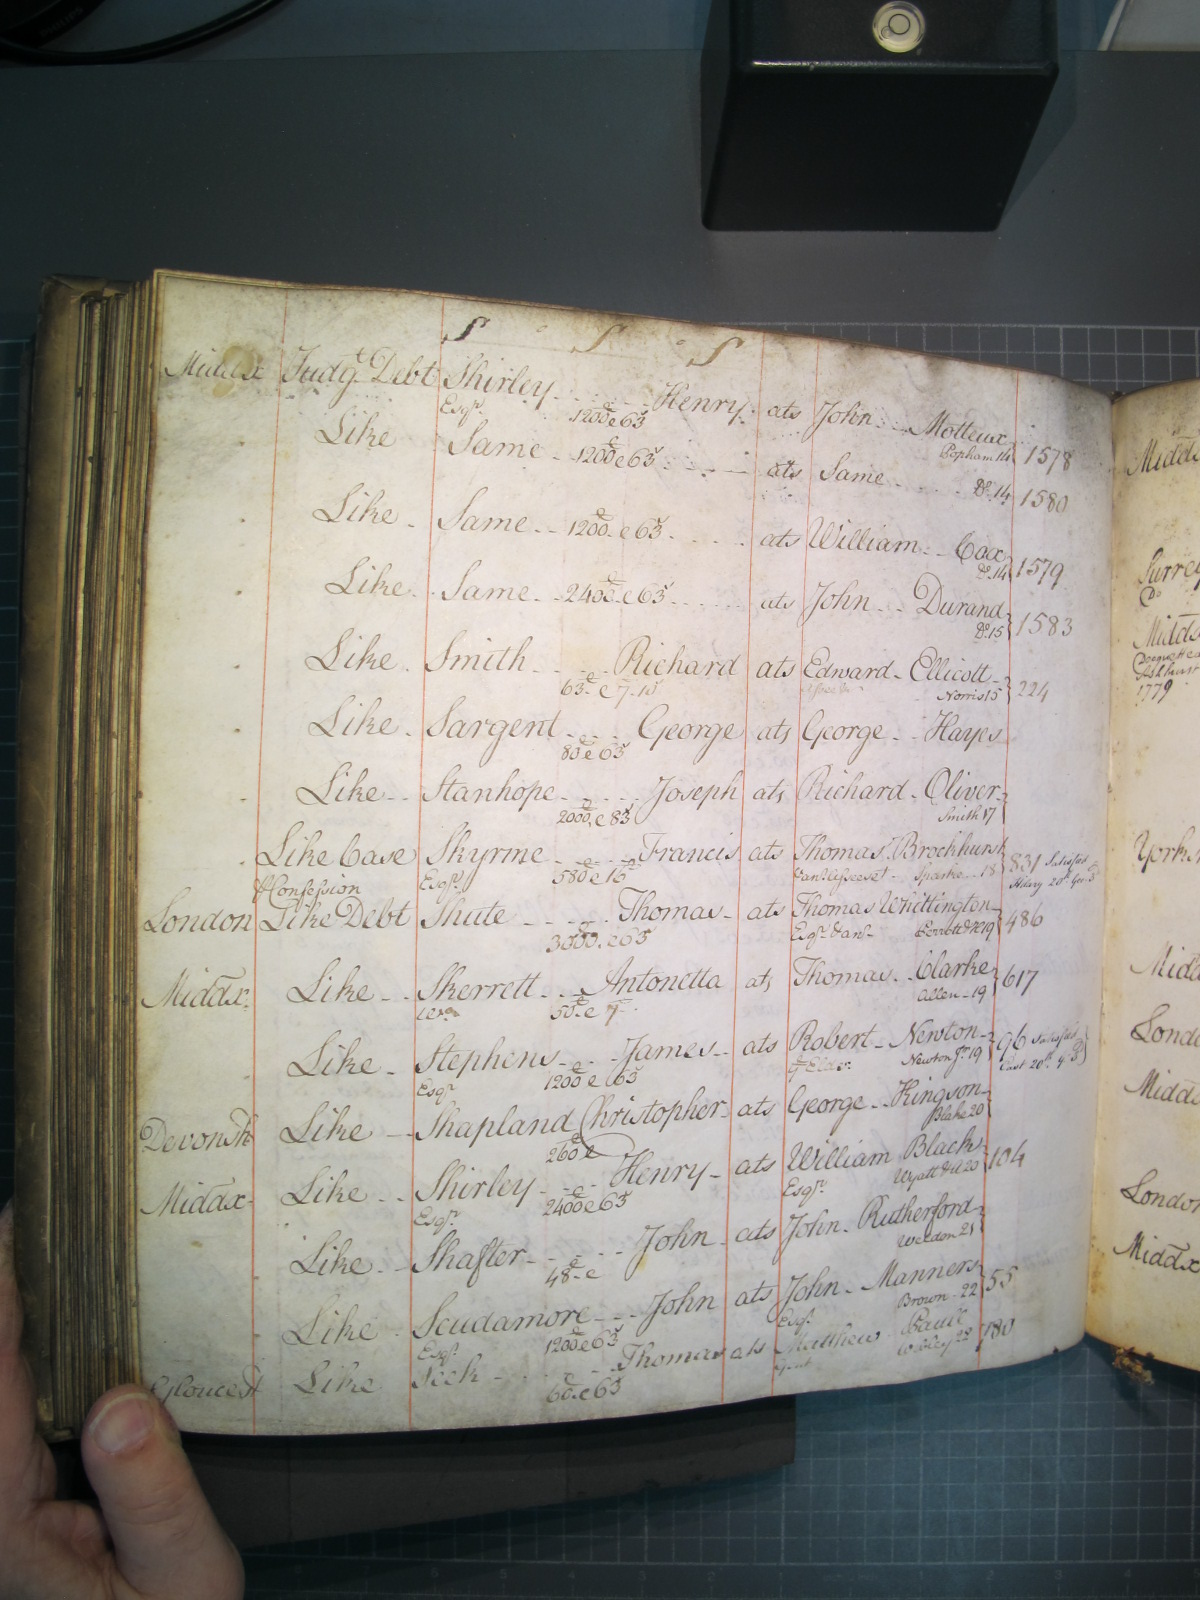 S S S
Middx Judgt Debt Shirley Henry ats John Motteux
Esqr. 1200 e 63s Popham 14 1578
Like Same 1200 e 63s ats Same Do. 14 1580
Like Same 1200 e 63s ats William Cox
Do. 14 1579
Like Same 2400 e 63s ats John Durand
Do. 15 1583
Like Smith Richard ats Edward Ellicott
63 e 7.10 Norris 15 224
Like Sargent George ats George Hayes
80 e 63s
Like Stanhope Joseph ats Richard Oliver
2000 e 83s Smith 17
Like Case Skyrme Francis ats Thomas Brockhurst
Confession Esqr. 580 e 15s Sparke 18 831 Satisfied Hilary 20th Geo. 3d
London Like Debt Shute Thomas ats Thomas Whittington
3000 e 63s Esqr. & anr. 19 486
Middx Like Skerrett Antonetta ats Thomas Clarke
50 e 7 Allen 19 617
Like Stephens James ats Robert Newton
Esqr 1200 e 63s ye Elder Newton Jr. 19 96 Satisfied East 20th G. 3d
Devonsh Like Shapland Christopher ats George Kingson
260 e Blake 20
Middx Like Shirley Henry ats William Black
Esqr. 2400 e 63s Esqr. Wyatt 20 104
Like Shafter John ats John Rutherford
48 e Weldon 21
Like Scudamore John ats John Manners
Esqr. 1200 e 63s Esqr. Brown 22 55
Gloucest Like Seck Thomas ats Matthew Paul
60 e 63s Gent 22 180
Middx
Surrey
Middx
Ashhurst
1779
Yorks
Middx
London
Middx
London
Middx